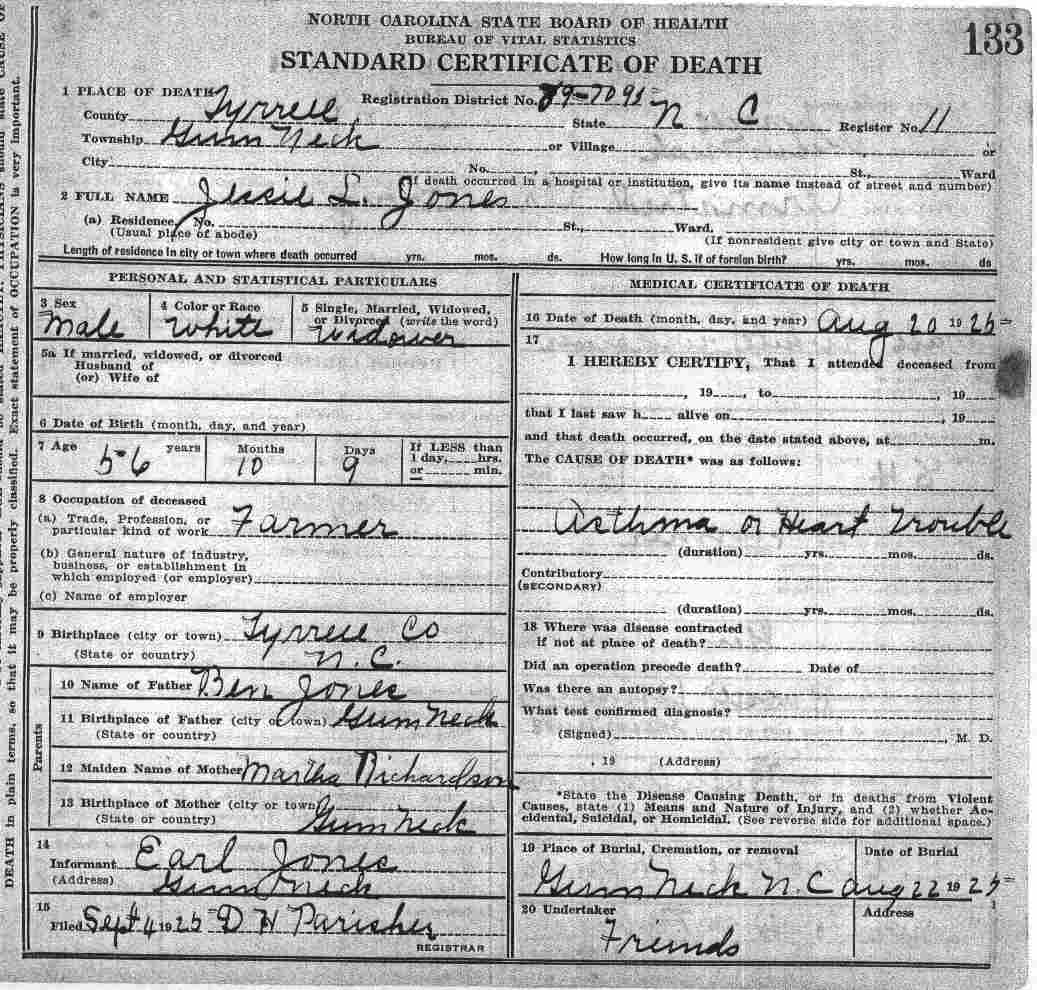 NORTH CAROLINA STATE BOARD OF HEALTH
BUREAU OF VITAL STATISTICS
STANDARD CERTIFICATE OF DEATH
133
1 PLACE OF DEATH
Registration District No. 89-7091
County Tyrrell State N C Register No. 11
Township Gum Neck or Village or
City No. St., Ward
(If death occurred in a hospital or institution, give its name instead of street and number)
2 FULL NAME Jessie L. Jones
(a) Residence, No. St., Ward.
(Usual place of abode) (If nonresident give city or town and State)
Length of residence in city or town where death occurred yrs. mos. ds. How long in U. S. if of foreign birth? yrs. mos. ds
PERSONAL AND STATISTICAL PARTICULARS
3 Sex
Male
4 Color or Race
White
5 Single, Married, Widowed,
or Divorced (write the word)
Widower
5a If married, widowed, or divorced
Husband of
(or) Wife of
6 Date of Birth (month, day, and year)
7 Age 56 years 10 Months 9 Days
If LESS than
1 day, hrs.
or min.
8 Occupation of deceased
(a) Trade, Profession, or
particular kind of work Farmer
(b) General nature of industry,
business, or establishment in
which employed (or employer)
(c) Name of employer
9 Birthplace (city or town) Tyrrell Co
(State or country) N.C.
Parents
10 Name of Father Ben Jones
11 Birthplace of Father (city or town) Gum Neck
(State or country)
12 Maiden Name of Mother Martha Richardson
13 Birthplace of Mother (city or town)
(State or country) Gum Neck
14
Informant Earl Jones
(Address) Gum Neck
15
Filed Sept 4 1925 D H Parisher
REGISTRAR
MEDICAL CERTIFICATE OF DEATH
16 Date of Death (month, day, and year) Aug 20 1925
17
I HEREBY CERTIFY, That I attended deceased from
, 19 , to , 19
that I last saw h alive on , 19
and that death occurred, on the date stated above, at m.
The CAUSE OF DEATH* was as follows:
Asthma or Heart Trouble
(duration) yrs. mos. ds.
Contributory
(SECONDARY)
(duration) yrs. mos. ds.
18 Where was disease contracted
if not at place of death?
Did an operation precede death? Date of
Was there an autopsy?
What test confirmed diagnosis?
(Signed) , M. D.
, 19 (Address)
*State the Disease Causing Death, or in deaths from Violent
Causes, state (1) Means and Nature of Injury, and (2) whether Ac-
cidental, Suicidal, or Homicidal. (See reverse side for additional space.)
19 Place of Burial, Cremation, or removal
Gum Neck N.C
Date of Burial
Aug 22 1925
20 Undertaker
Friends
Address
DEATH in plain terms, so that it may be properly classified. Exact statement of OCCUPATION is very important.